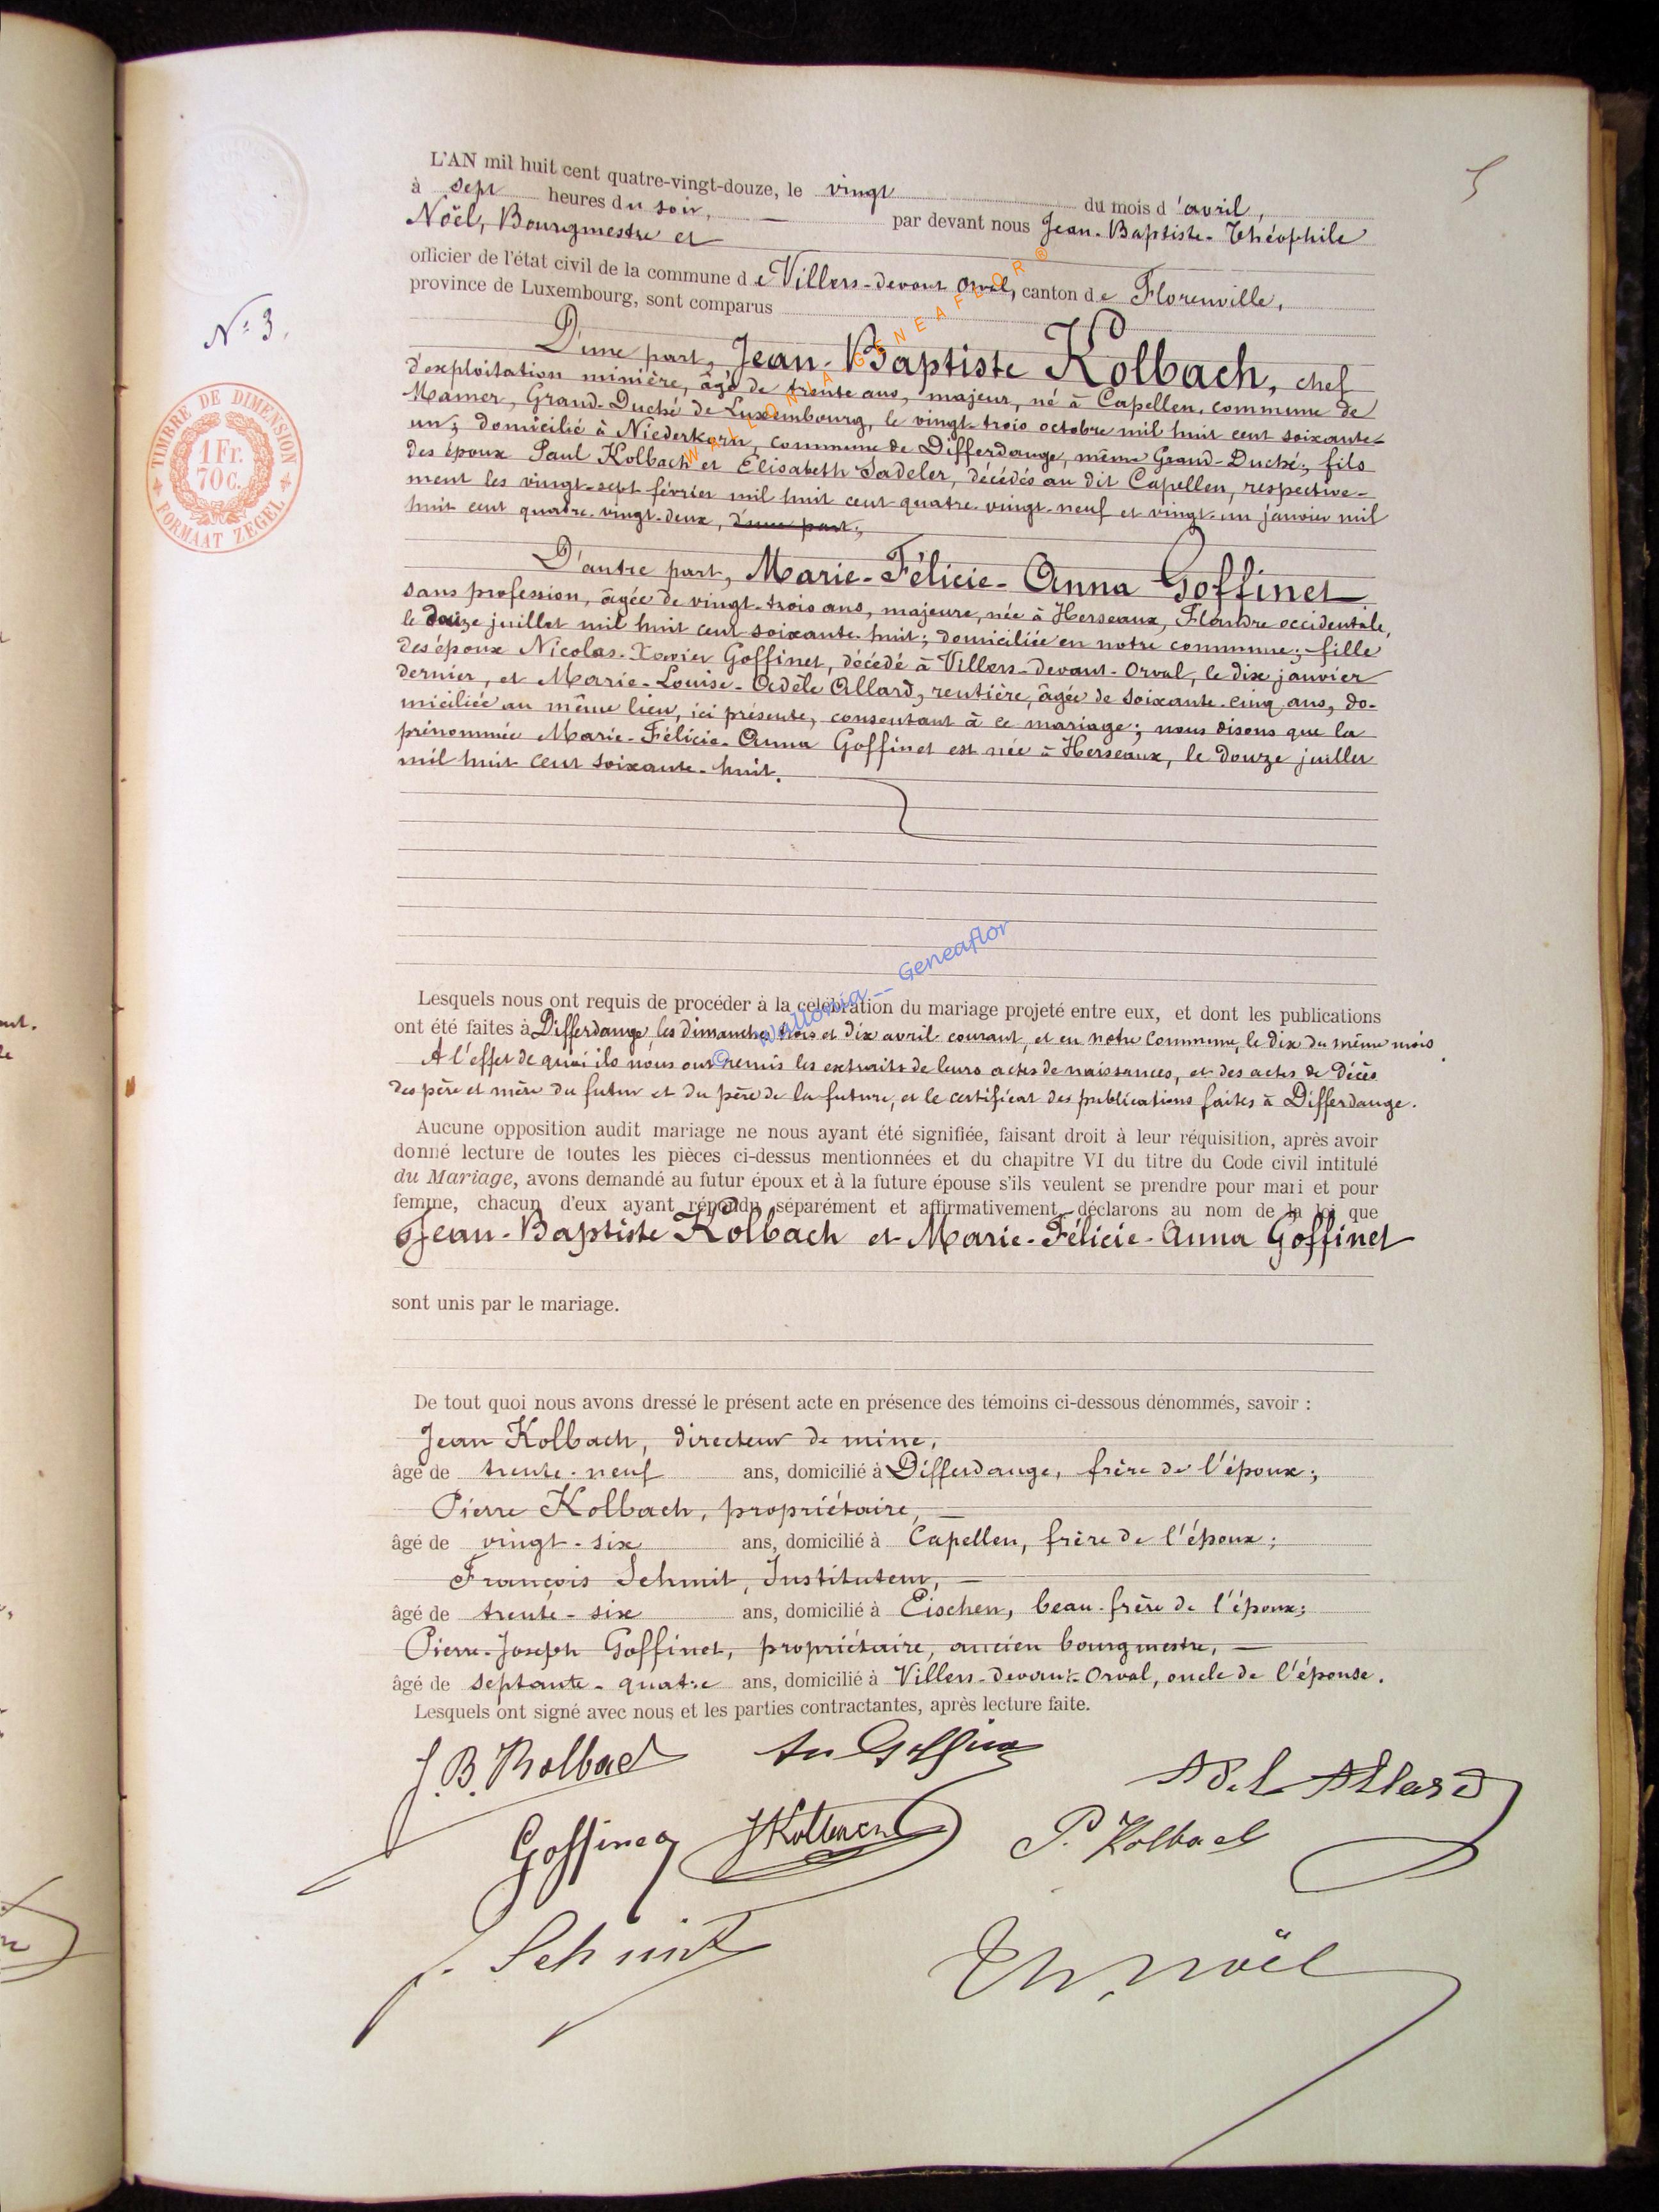 5
L'AN mil huit cent quatre-vingt-douze, le vingt du mois d'avril,
à sept heures du soir, par devant nous Jean-Baptiste-Théophile
Noël, Bourgmestre et
officier de l'état civil de la commune de Villers-devant Orval, canton de Florenville,
province de Luxembourg, sont comparus
N° 3.
D'une part, Jean-Baptiste Kolbach, chef
d'exploitation minière, âgé de trente ans, majeur, né à Capellen, commune de
Mamer, Grand-Duché de Luxembourg, le vingt-trois octobre mil huit cent soixante-
un; domicilié à Niederkorn, commune de Differdange, même Grand-Duché; fils
des époux Paul Kolbach et Elisabeth Sadeler, décédés au dit Capellen, respective-
ment les vingt-sept février mil huit cent quatre-vingt-neuf et vingt-un janvier mil
huit cent quatre-vingt-deux, d'une part;
TIMBRE DE DIMENSION
1 Fr.
70 c.
FORMAAT ZEGEL
D'autre part, Marie-Félicie-Anna Goffinet
sans profession, âgée de vingt-trois ans, majeure, née à Herseaux, Flandre occidentale,
le douze juillet mil huit cent soixante-huit; domiciliée en notre commune; fille
des époux Nicolas-Xavier Goffinet, décédé à Villers-devant-Orval, le dix janvier
dernier, et Marie-Louise-Adèle Allard, rentière, âgée de soixante-cinq ans, do-
miciliée au même lieu, ici présente, consentant à ce mariage; nous disons que la
prénommée Marie-Félicie-Anna Goffinet est née à Herseaux, le douze juillet
mil huit cent soixante-huit.
WALLONIA GENEAFLOR ®
© Wallonia -- Geneaflor
Lesquels nous ont requis de procéder à la célébration du mariage projeté entre eux, et dont les publications
ont été faites à Differdange, les dimanches trois et dix avril courant, et en notre commune, le dix du même mois.
A l'effet de quoi ils nous ont remis les extraits de leurs actes de naissances, et des actes de décès
des père et mère du futur et du père de la future, et le certificat des publications faites à Differdange.
Aucune opposition audit mariage ne nous ayant été signifiée, faisant droit à leur réquisition, après avoir
donné lecture de toutes les pièces ci-dessus mentionnées et du chapitre VI du titre du Code civil intitulé
du Mariage, avons demandé au futur époux et à la future épouse s'ils veulent se prendre pour mari et pour
femme, chacun d'eux ayant répondu séparément et affirmativement, déclarons au nom de la loi que
Jean-Baptiste Kolbach et Marie-Félicie-Anna Goffinet
sont unis par le mariage.
De tout quoi nous avons dressé le présent acte en présence des témoins ci-dessous dénommés, savoir :
Jean Kolbach, directeur de mine,
âgé de trente-neuf ans, domicilié à Differdange, frère de l'époux;
Pierre Kolbach, propriétaire,
âgé de vingt-six ans, domicilié à Capellen, frère de l'époux;
François Schmit, Instituteur,
âgé de trente-six ans, domicilié à Eischen, beau-frère de l'époux;
Pierre-Joseph Goffinet, propriétaire, ancien bourgmestre,
âgé de septante-quatre ans, domicilié à Villers-devant-Orval, oncle de l'épouse.
Lesquels ont signé avec nous et les parties contractantes, après lecture faite.
J. B. Kolbach An Goffinet Adel Allard
Goffinet J Kolbach P. Kolbach
f. Schmit Th. Noël